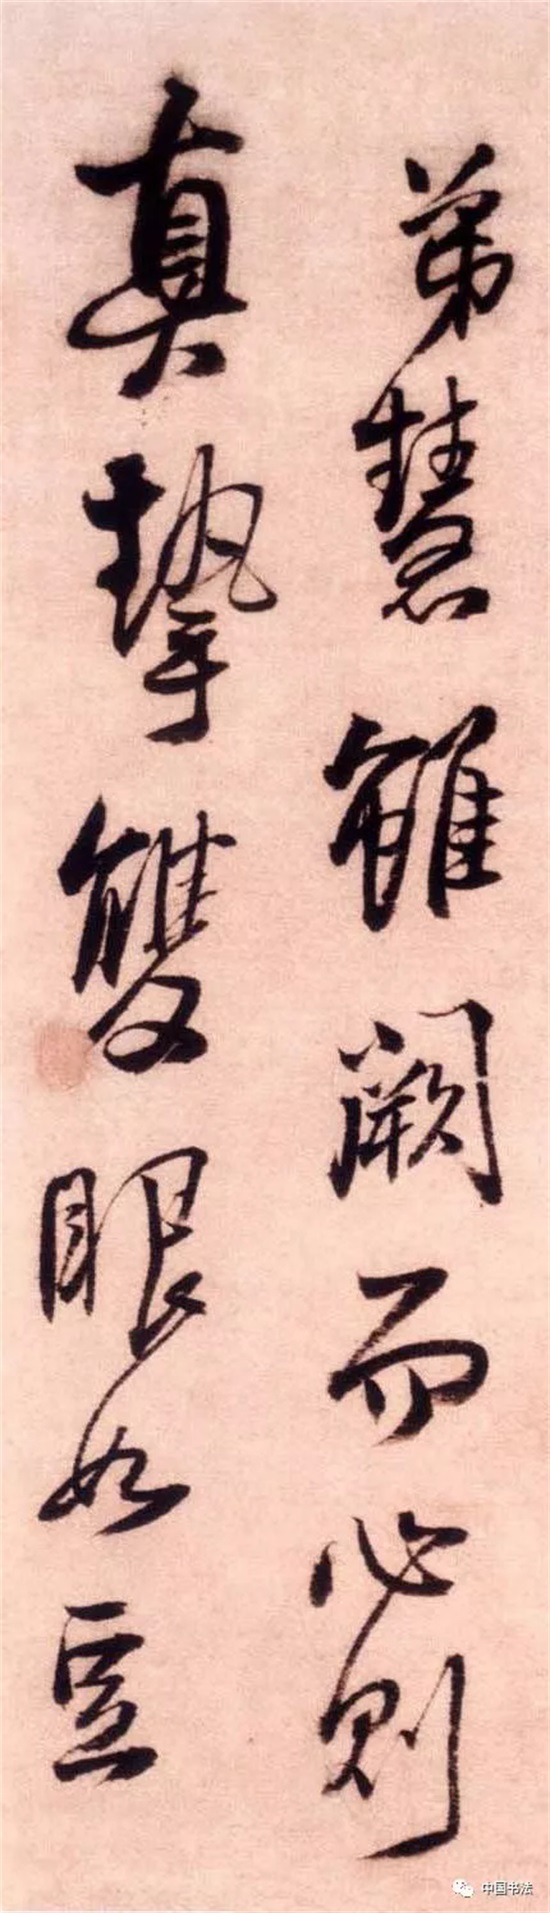 弟慧雖闕而心則
真摯雙眼如豆
中国书法